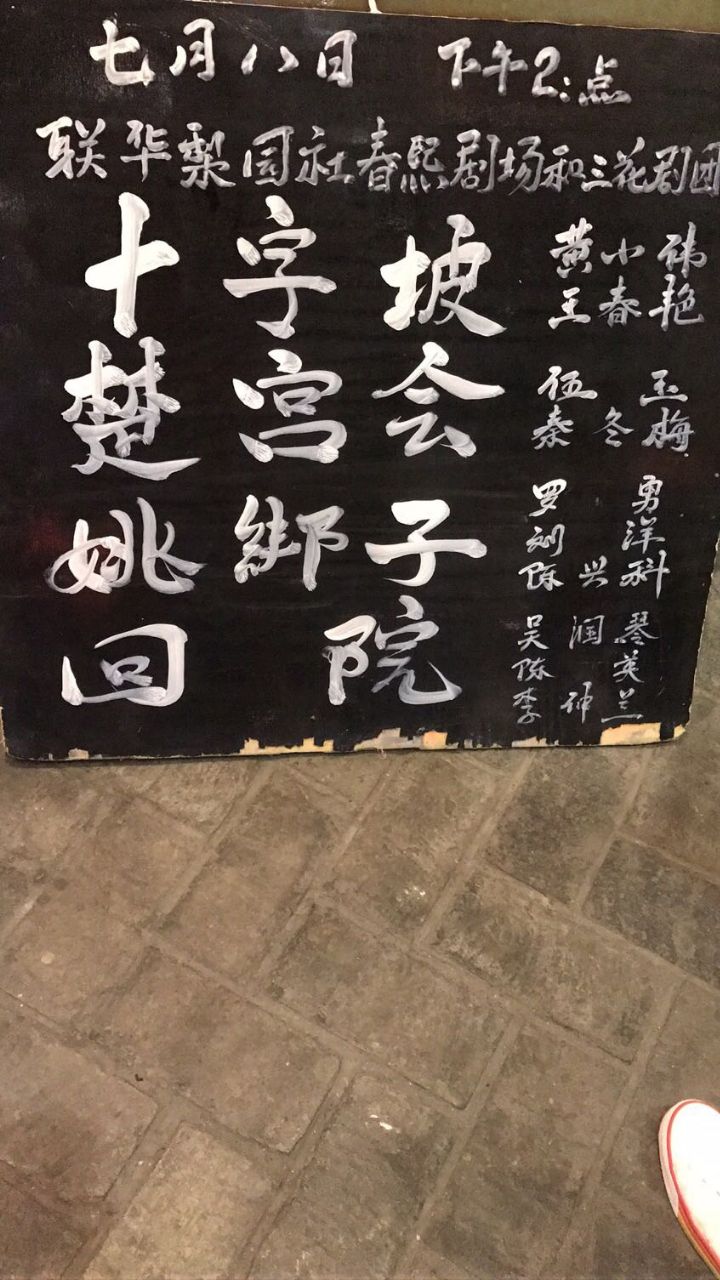 七月八日 下午2:点
联华梨园社春熙剧场和三花剧团
十字坡 黄小祎
王春艳
楚宫会 伍玉
秦冬梅
姚绑子 罗勇
刘洋
陈兴科
回院 吴润琴
陈英
李钟兰